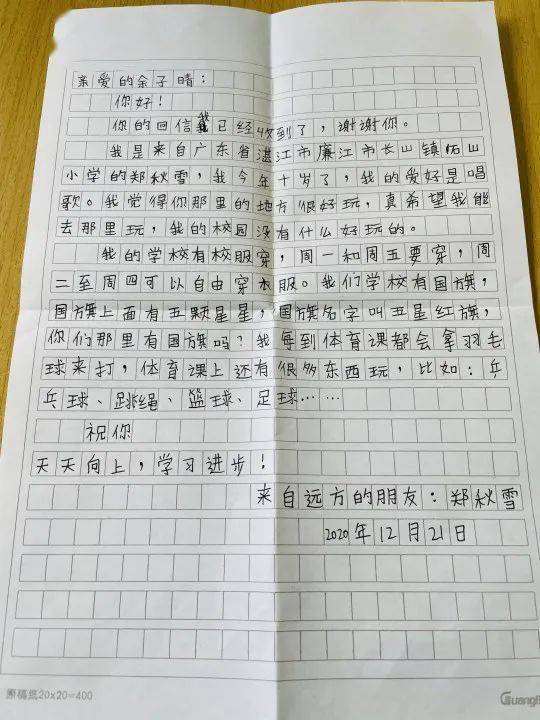 亲爱的余子晴：
你好！
你的回信我已经收到了，谢谢你。
我是来自广东省湛江市廉江市长山镇柘山
小学的郑秋雪，我今年十岁了，我的爱好是唱
歌。我觉得你那里的地方很好玩，真希望我能
去那里玩，我的校园没有什么好玩的。
我的学校有校服穿，周一和周五要穿，周
二至周四可以自由穿衣服。我们学校有国旗，
国旗上面有五颗星星，国旗名字叫五星红旗，
你们那里有国旗吗？我每到体育课都会拿羽毛
球来打，体育课上还有很多东西玩，比如：乒
乓球、跳绳、篮球、足球……
祝你
天天向上，学习进步！
来自远方的朋友：郑秋雪
2020年12月21日
原稿纸20×20=400